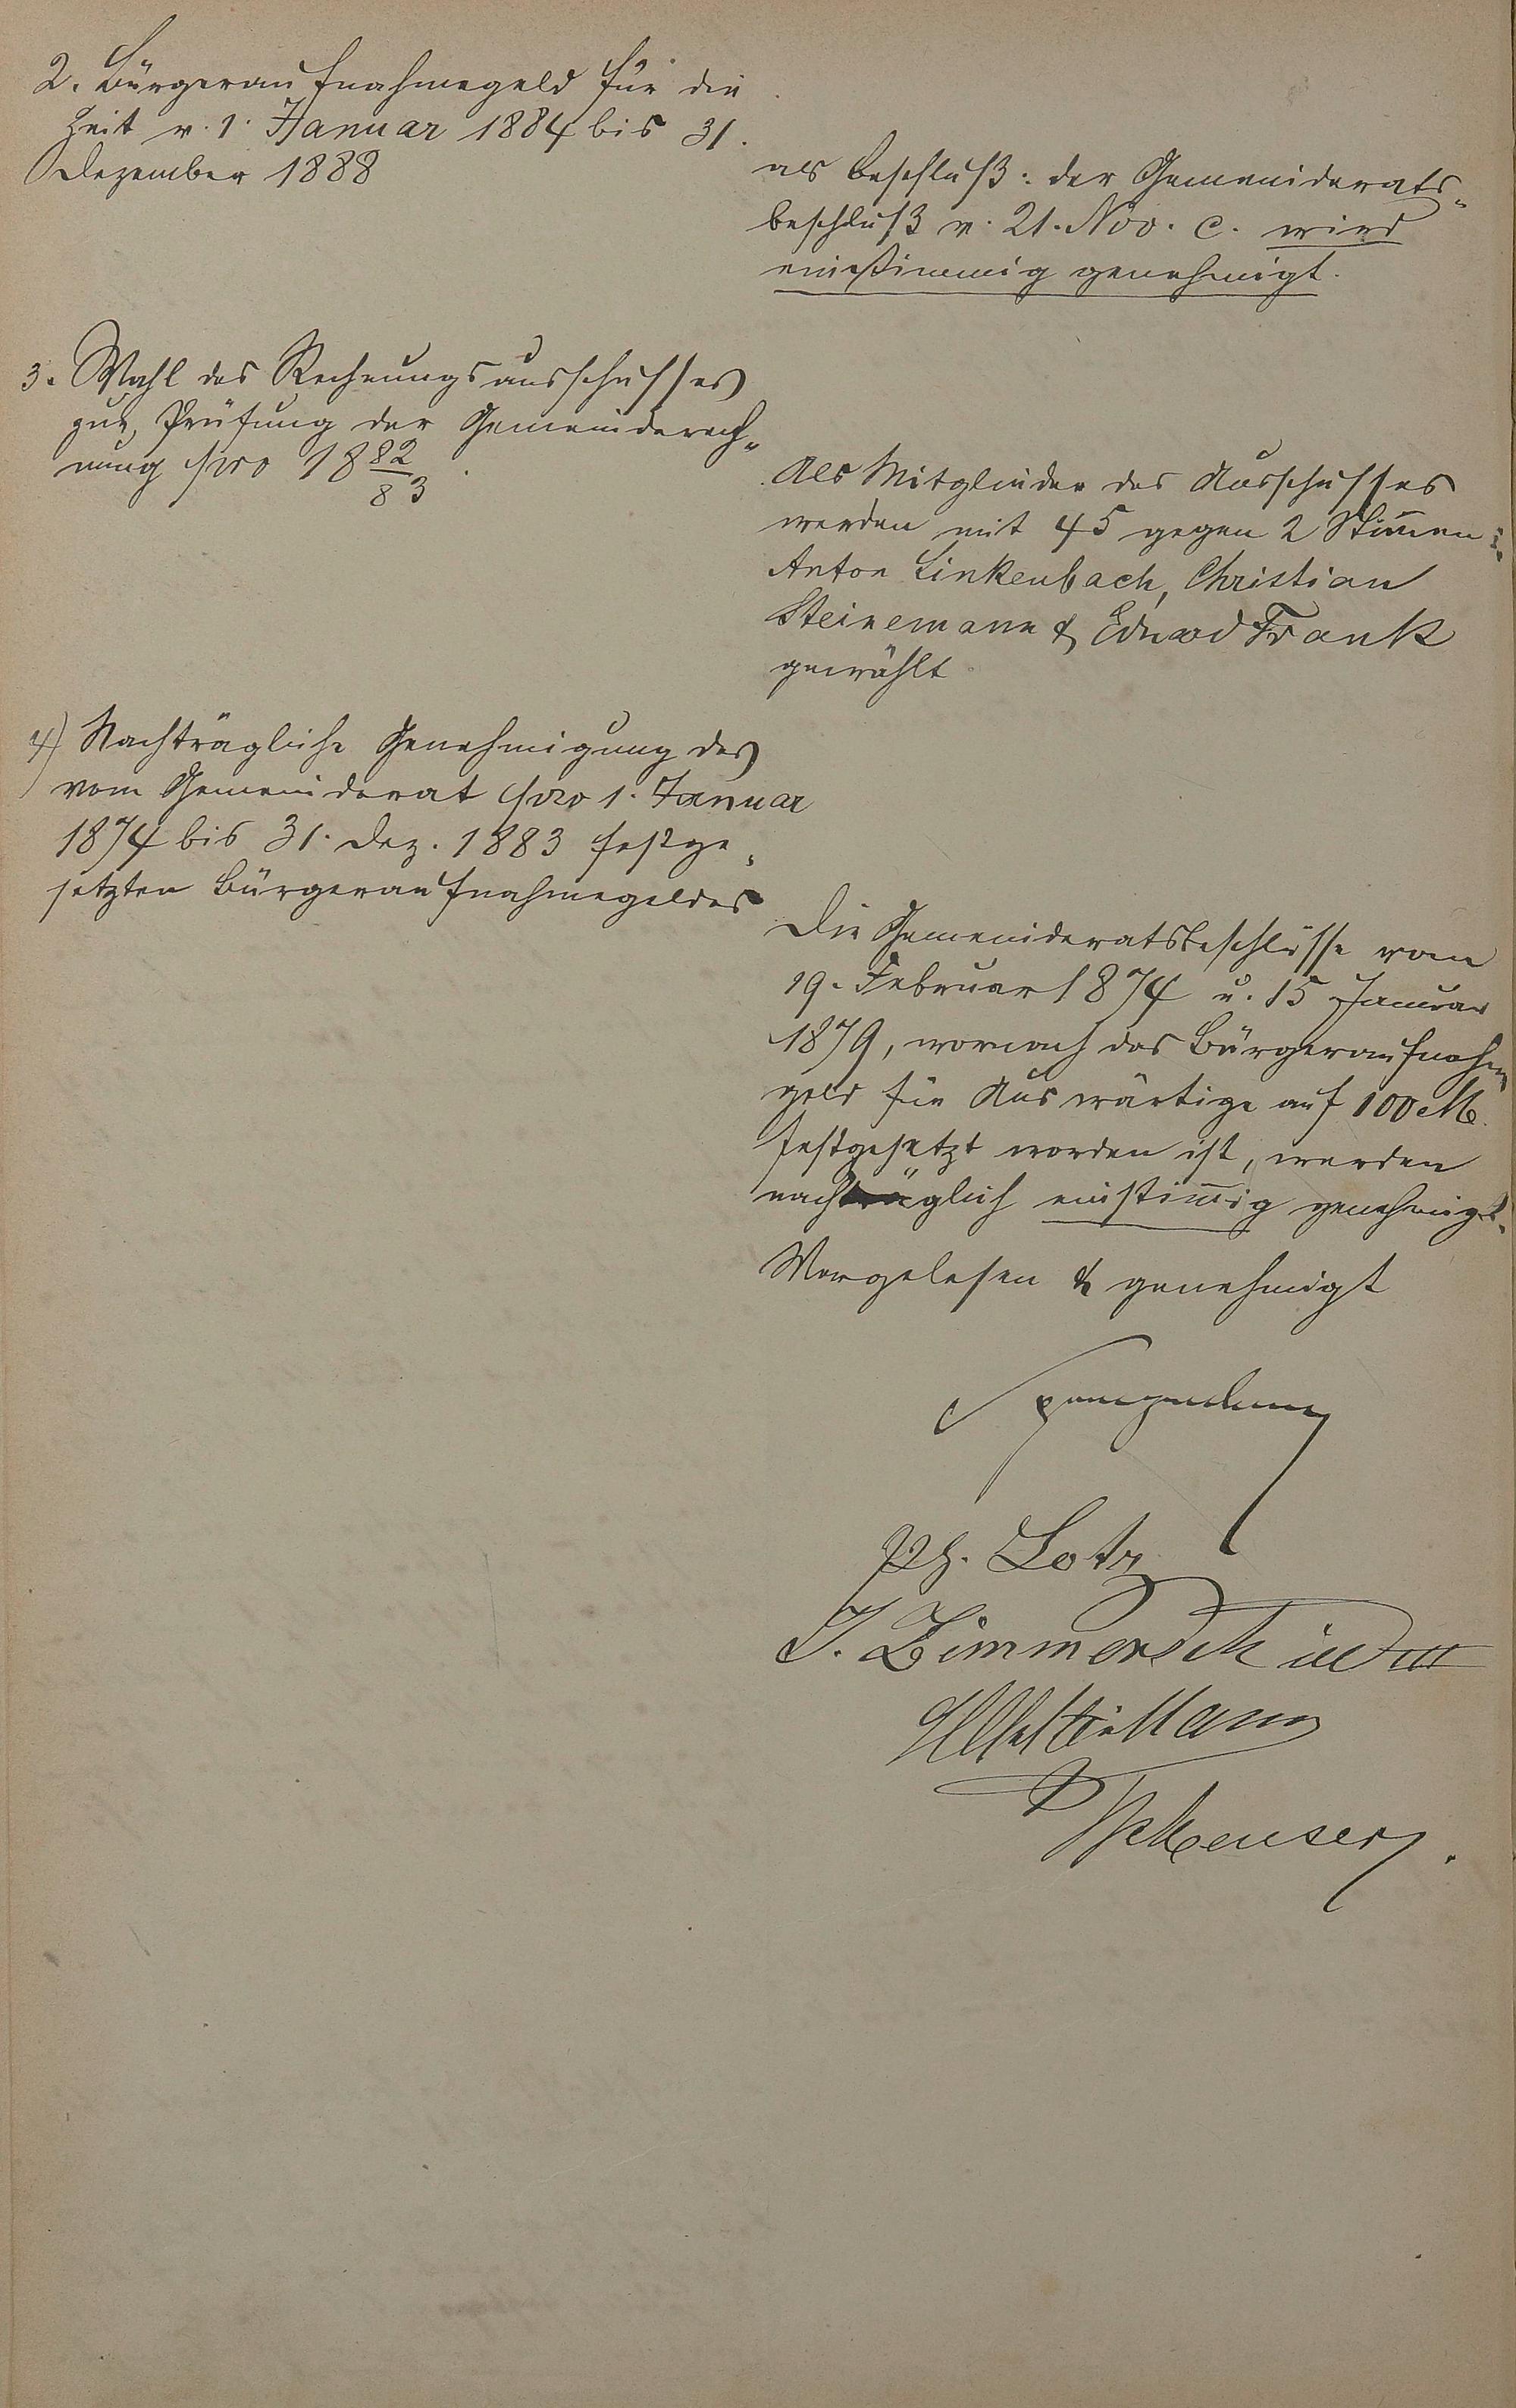 2. Bürgeraufnahmegeld für die
Zeit v. 1. Januar 1884 bis 31.
Dezember 1888
als Beschluß: der Gemeinderats-
beschluß v. 21. Nov. c. wird
einstimmig genehmigt.
3. Wahl des Rechnungsausschusses
zur Prüfung der Gemeinderech-
nung pro 1882/83.
Als Mitglieder des Ausschusses
werden mit 45 gegen 2 Stimmen:
Anton Linkenbach, Christian
Steinemann & Eduard Frank
gewählt
4) Nachträgliche Genehmigung des
vom Gemeinderat pro 1. Januar
1874 bis 31. Dez. 1883 festge-
setzten Bürgeraufnahmegeldes
Die Gemeinderatsbeschlüsse vom
19. Februar 1874 u. 15 Januar
1879, wornach das Bürgeraufnahm
geld für Auswärtige auf 100 M.
festgesetzt worden ist, werden
nachträglich einstimmig genehmigt.
Vorgelesen & genehmigt
Ph. Lotz
J. Zimmerschied III